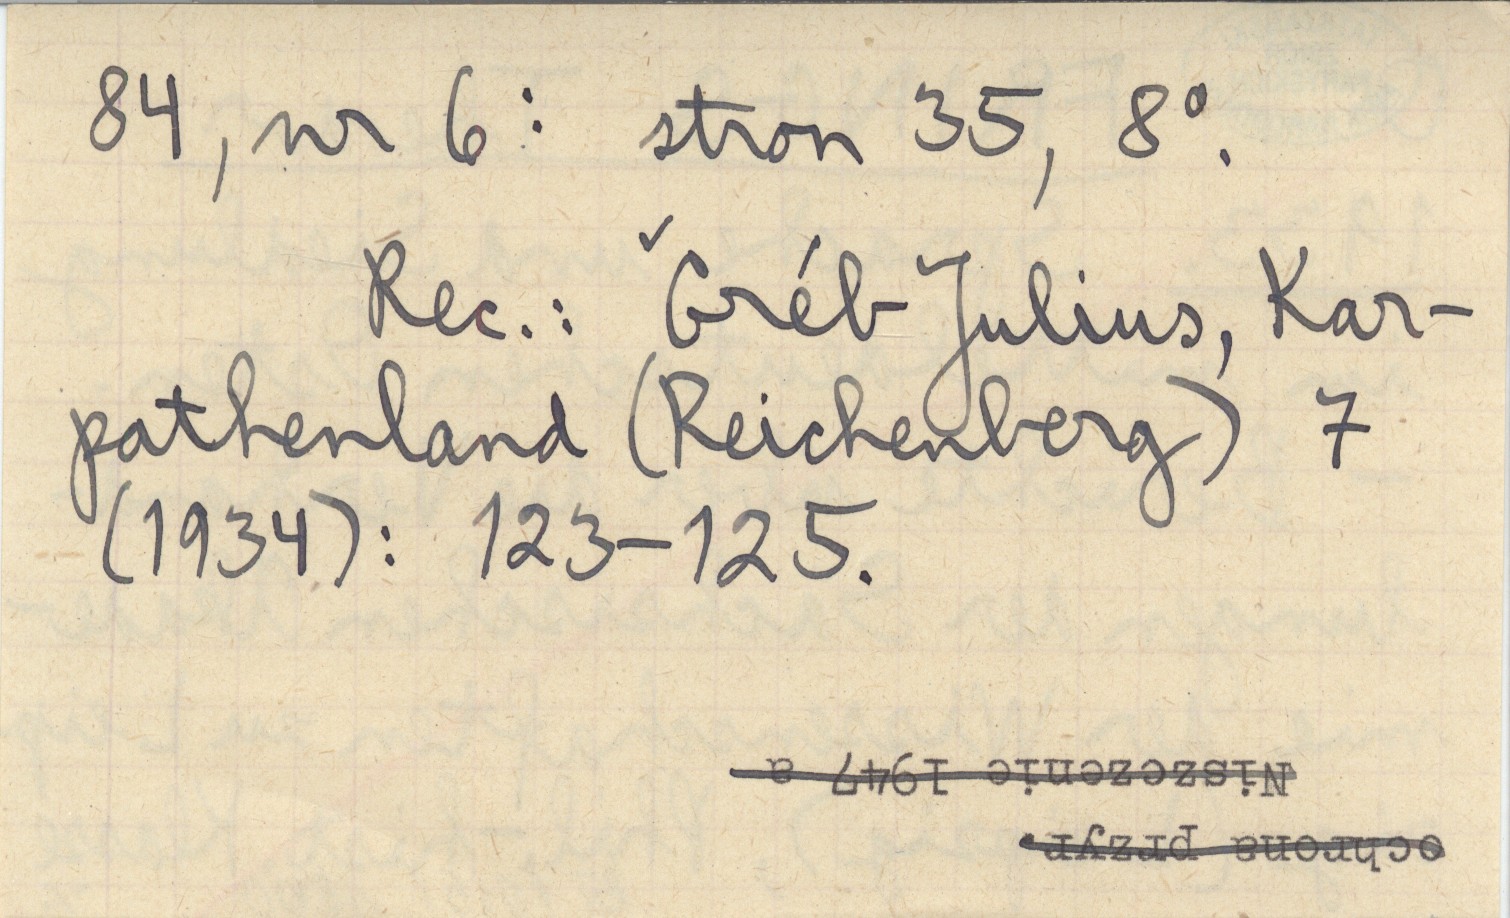 84, nr 6: stron 35, 8°.
Rec.: ✓Gréb Julius, Kar-
pathenland (Reichenberg) 7
(1934): 123–125.
Niszczenie 1947 a
ochrona przyr.